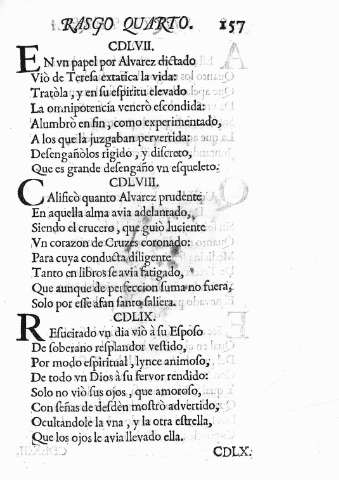 RASGO QUARTO. 157
CDLVII.
EN vn papel por Alvarez dictado
Viò de Teresa extatica la vida:
Tratòla, y en su espiritu elevado
La omnipotencia venerò escondida:
Alumbrò en fin, como experimentado,
A los que la juzgaban pervertida:
Desengañòlos rigido, y discreto,
Que es grande desengaño vn esqueleto.
CDLVIII.
CAlificò quanto Alvarez prudente
En aquella alma avia adelantado,
Siendo el crucero, que guiò luciente
Vn corazon de Cruzes coronado:
Para cuya conducta diligente
Tanto en libros se avia fatigado,
Que aunque de perfeccion suma no fuera,
Solo por esse afan santo saliera.
CDLIX.
REsucitado vn dia viò à su Esposo
De soberano resplandor vestido,
Por modo espiritual, lynce animoso,
De todo vn Dios à su fervor rendido:
Solo no viò sus ojos, que amoroso,
Con señas de desdèn mostrò advertido,
Ocultandole la vna, y la otra estrella,
Que los ojos le avia llevado ella.
CDLX.